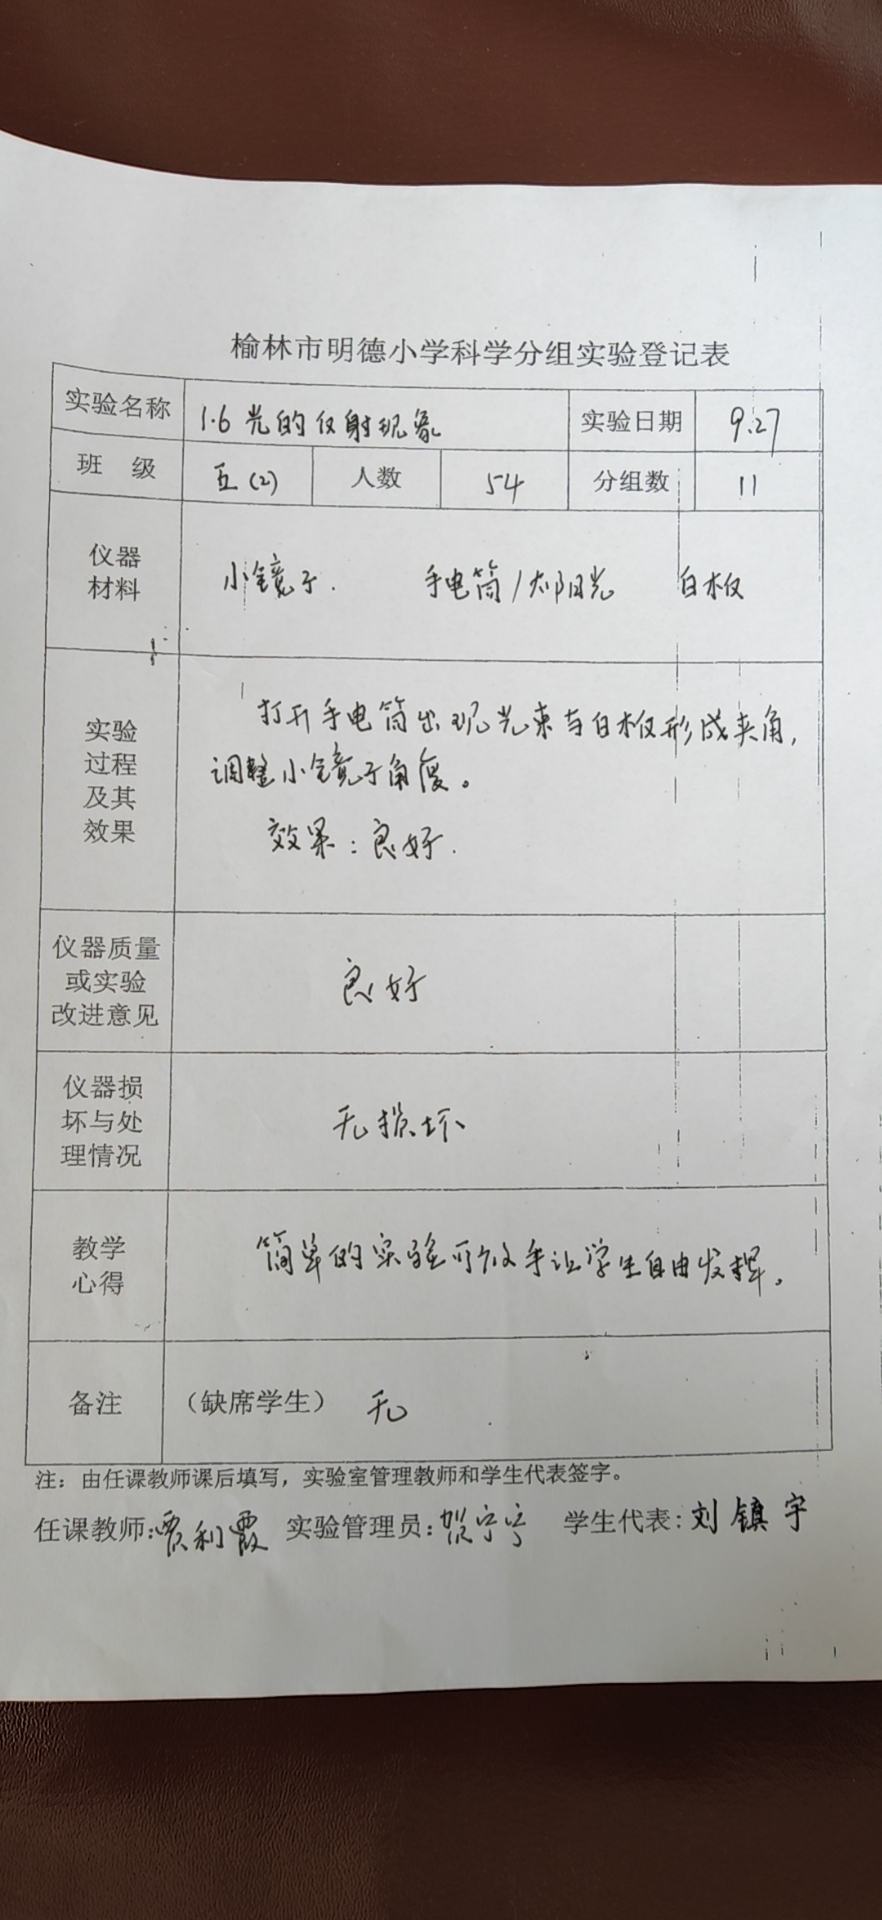 榆林市明德小学科学分组实验登记表
实验名称 1.6 光的反射现象 实验日期 9.27
班 级 五(2) 人数 54 分组数 11
仪器
材料
小镜子. 手电筒/太阳光 白板
实验
过程
及其
效果
打开手电筒出现光束与白板形成夹角,
调整小镜子角度。
效果:良好.
仪器质量
或实验
改进意见
良好
仪器损
坏与处
理情况
无损坏
教学
心得
简单的实验可放手让学生自由发挥。
备注 (缺席学生) 无
注:由任课教师课后填写,实验室管理教师和学生代表签字。
任课教师:贾利霞 实验管理员:贺宁宁 学生代表:刘镇宇